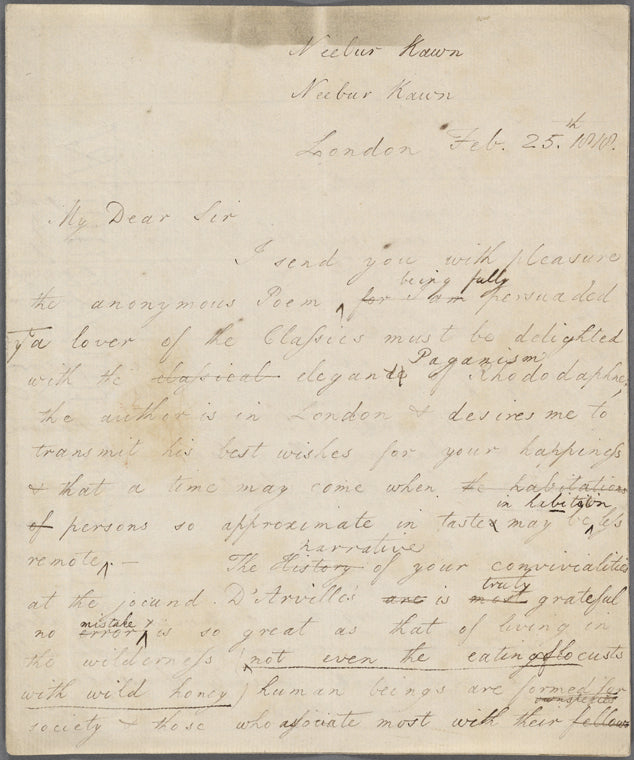 Neebur Kawn
Neebur Kawn
London Feb. 25.th 1818.
My Dear Sir
I send you with pleasure
being fully
the anonymous Poem ‸ for I am persuaded
yt a lover of the Classics must be delighted
Paganism
with the classical elegant of Rhododaphne,
the author is in London & desires me to
transmit his best wishes for your happiness
& that a time may come when the habitations
in habitation
of persons so approximate in taste may be less
remote. —
narrative
The History of your convivialities
truly
at the jocund D'Arville's are is most grateful
mistake
no error is so great as that of living in
the wilderness (not even the eating of locusts
with wild honey) human beings are formed for
own species
society & those who associate most with their fellows